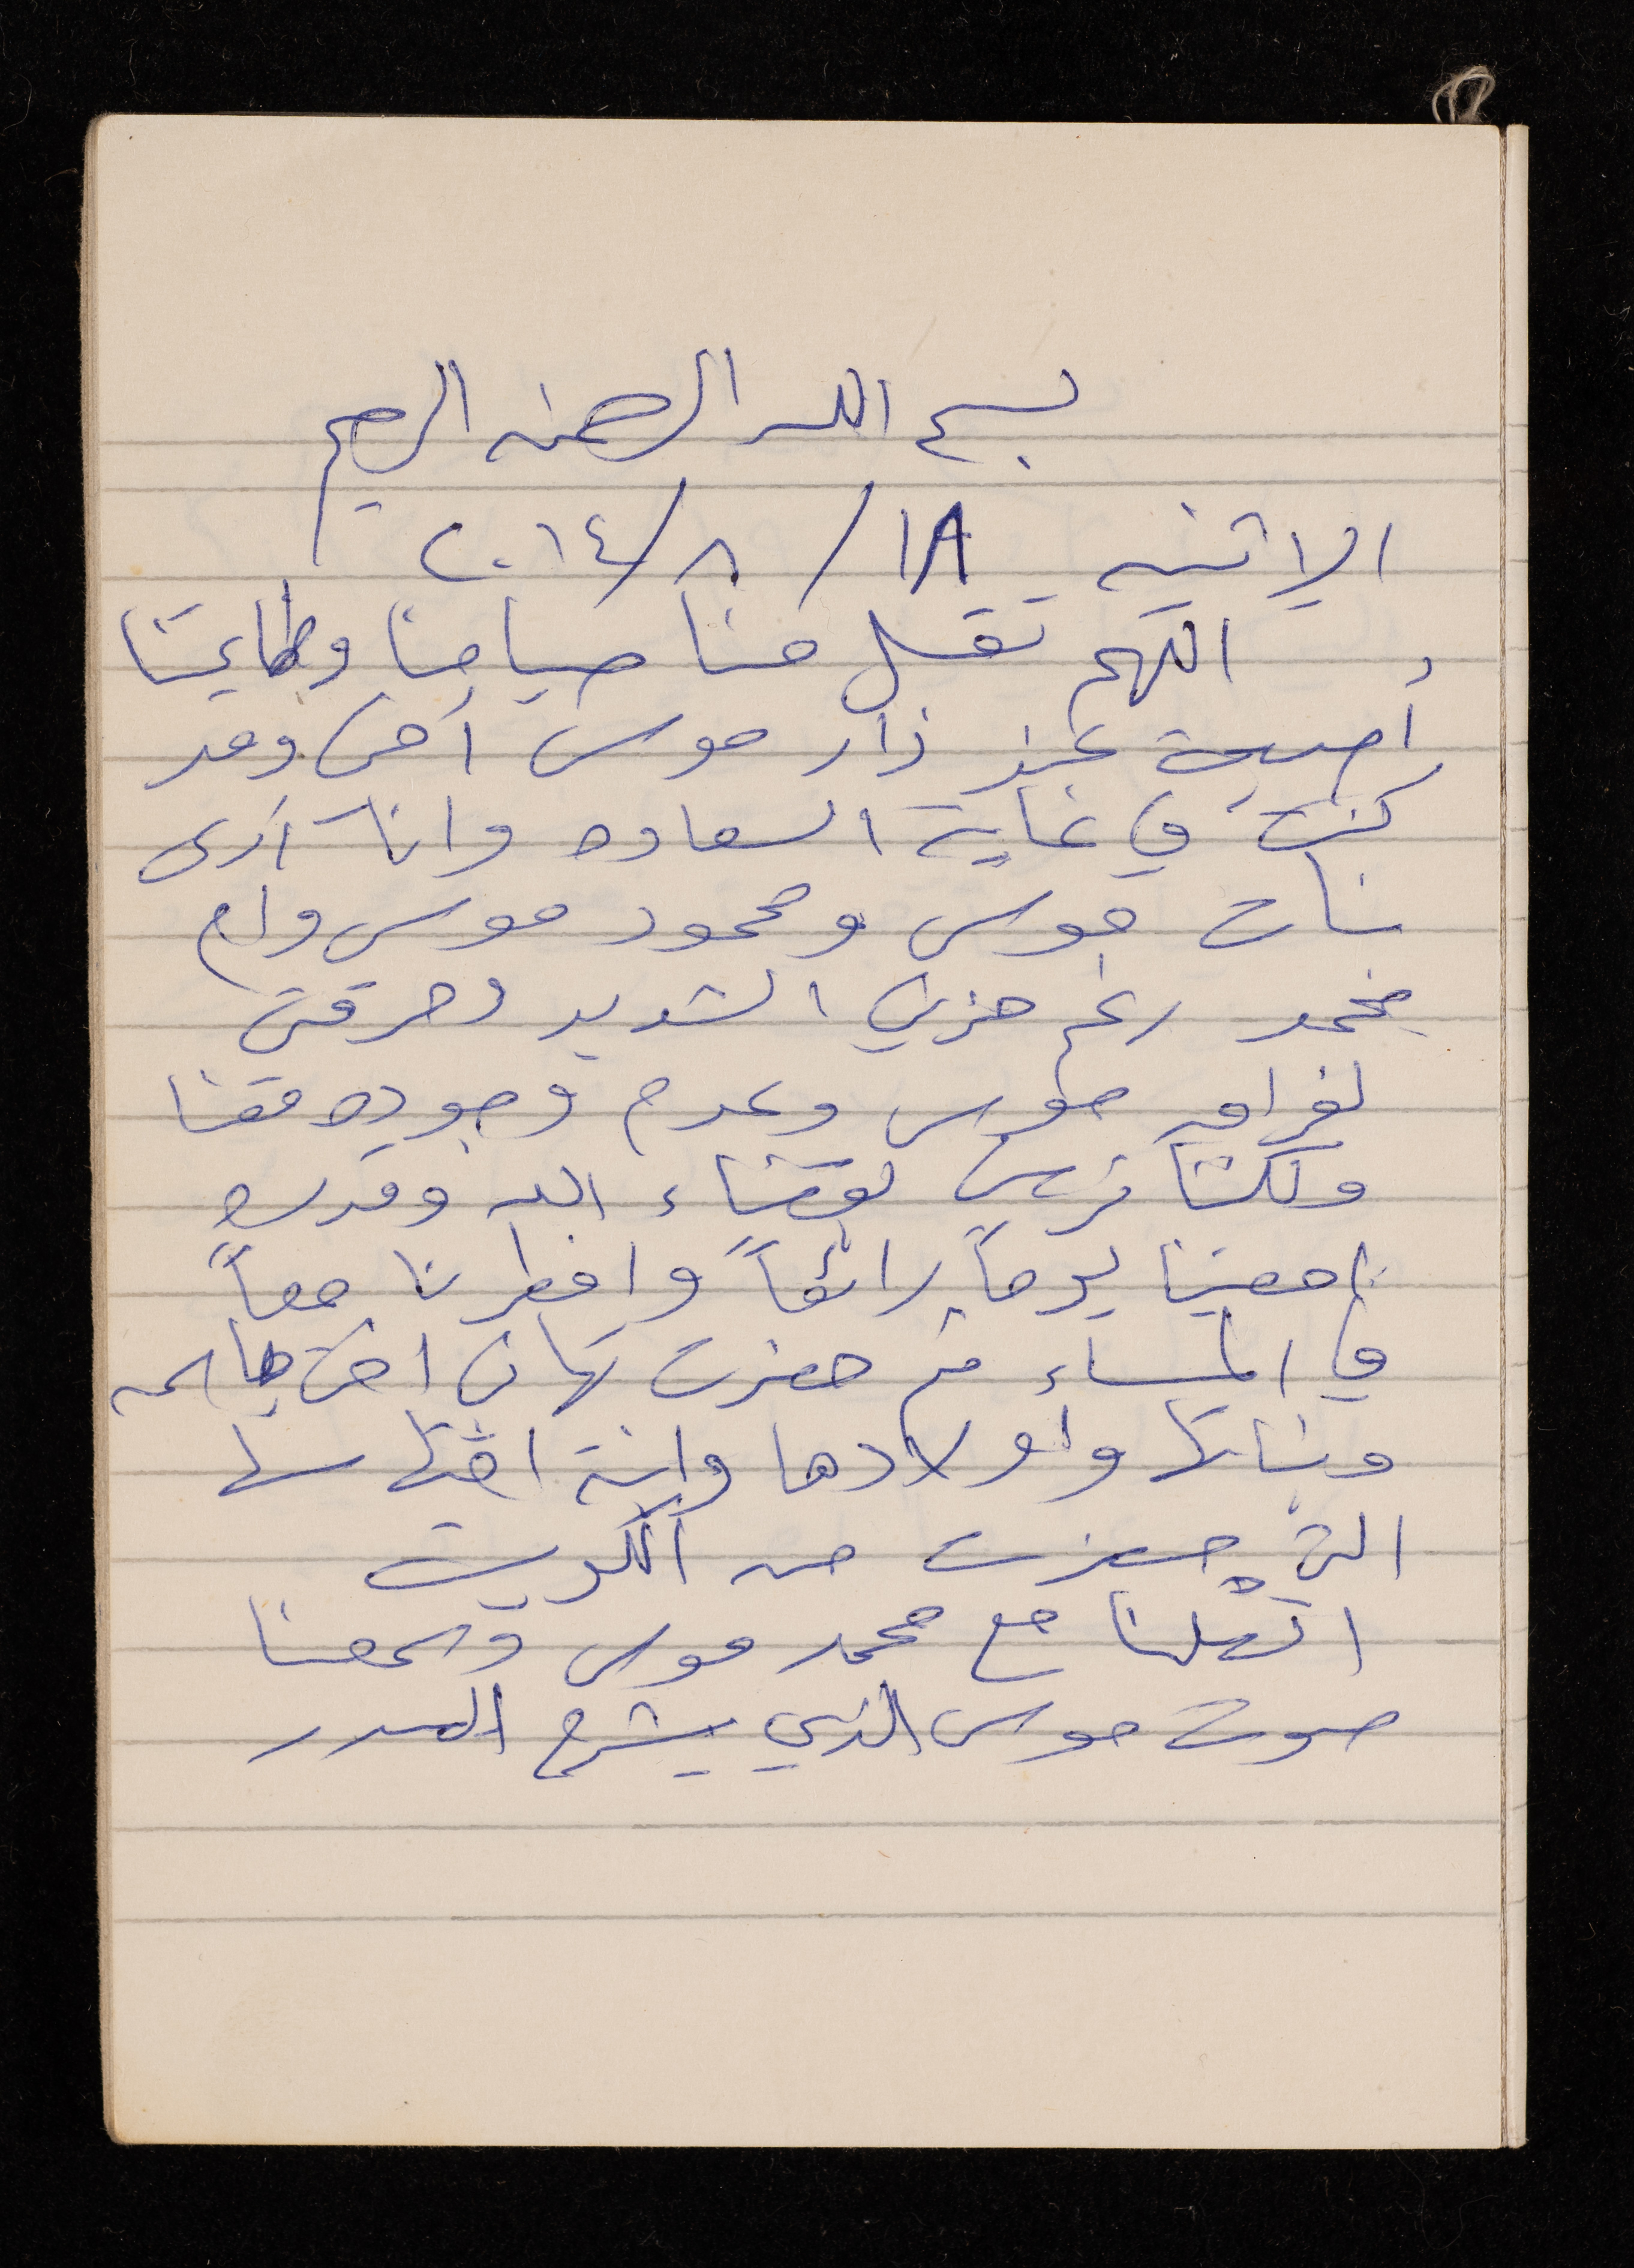 بسم الله الرحمن الرحيم
الاثنين ١٨/٨/٢٠١٤
اللهم تقبل منا صيامنا وطاعتنا
أصبحت عند دار موسى أخي وقد
كنت في غاية السعاده وانا أرى
بنات موسى ومحمود موسى وام
محمد رغم حزني الشديد وحرقتي
لفراق موسى وعدم وجوده معنا
ولكننا نرضى بقضاء الله وقدره
امضينا يوماً رائعاً وافطرنا معاً
في المساء ثم حضرت تهاني اختي
وبناتها واولادها وابنة اختها سها
التي حضرت من الكويت
اتصلنا مع محمد موسى وسمعنا
صوت موسى الذي يشرح الصدر